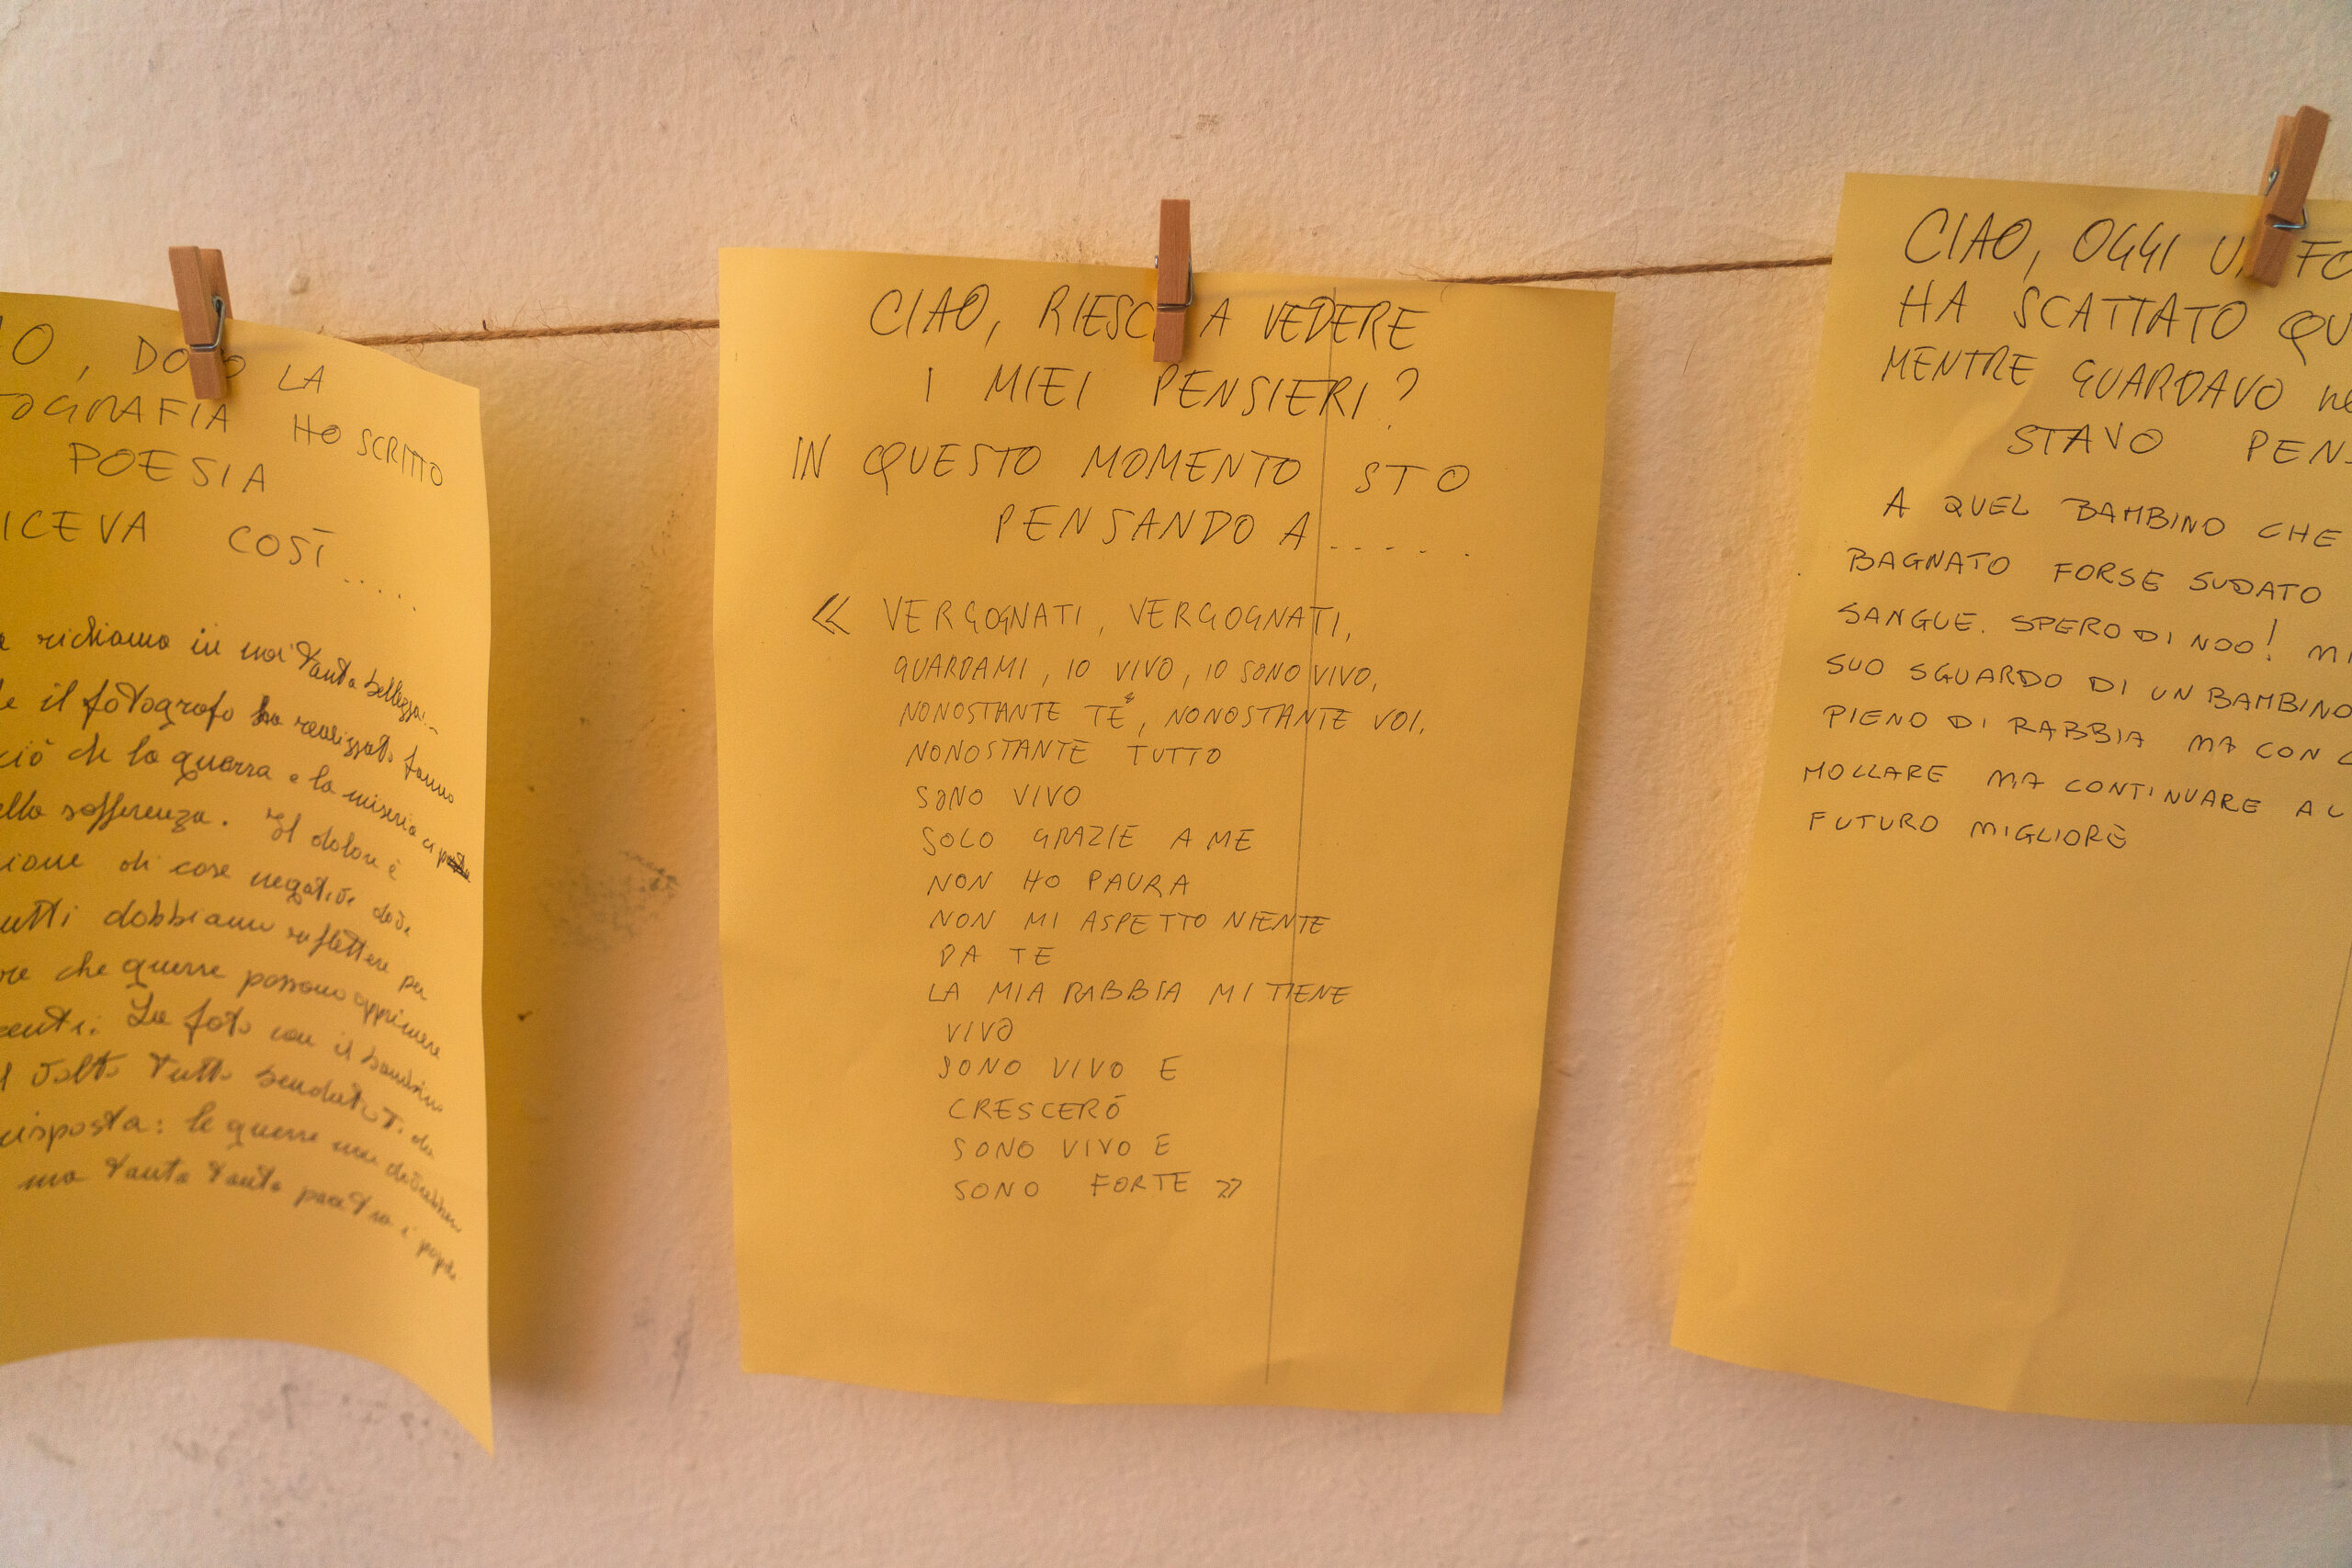 , DOPO LA
HO SCRITTO
POESIA
COSĪ .....
richiamo in noi tanta bellezza...
il fotografo ha realizzato fanno
ciò che la guerra e la miseria ci
sofferenza. Il dolore è
di cose negative dove
dobbiamo riflettere per
che guerre possono opprimere
La foto con il bambino
tutto bendato
risposta: le guerre non
ma tanta tanta
CIAO, RIESCI A VEDERE
I MIEI PENSIERI?
IN QUESTO MOMENTO STO
PENSANDO A.....
« VERGOGNATI, VERGOGNATI,
GUARDAMI, IO VIVO, IO SONO VIVO,
NONOSTANTE TE, NONOSTANTE VOI,
NONOSTANTE TUTTO
SONO VIVO
SOLO GRAZIE A ME
NON HO PAURA
NON MI ASPETTO NIENTE
DA TE
LA MIA RABBIA MI TIENE
VIVO
SONO VIVO E
CRESCERÒ
SONO VIVO E
SONO FORTE »
CIAO, OGGI
HA SCATTATO
MENTRE GUARDAVO
STAVO
A QUEL BAMBINO CHE
BAGNATO FORSE SUDATO
SANGUE. SPERO DI NOO!
SUO SGUARDO DI UN BAMBINO
PIENO DI RABBIA MA CON
MOLLARE MA CONTINUARE A
FUTURO MIGLIORE